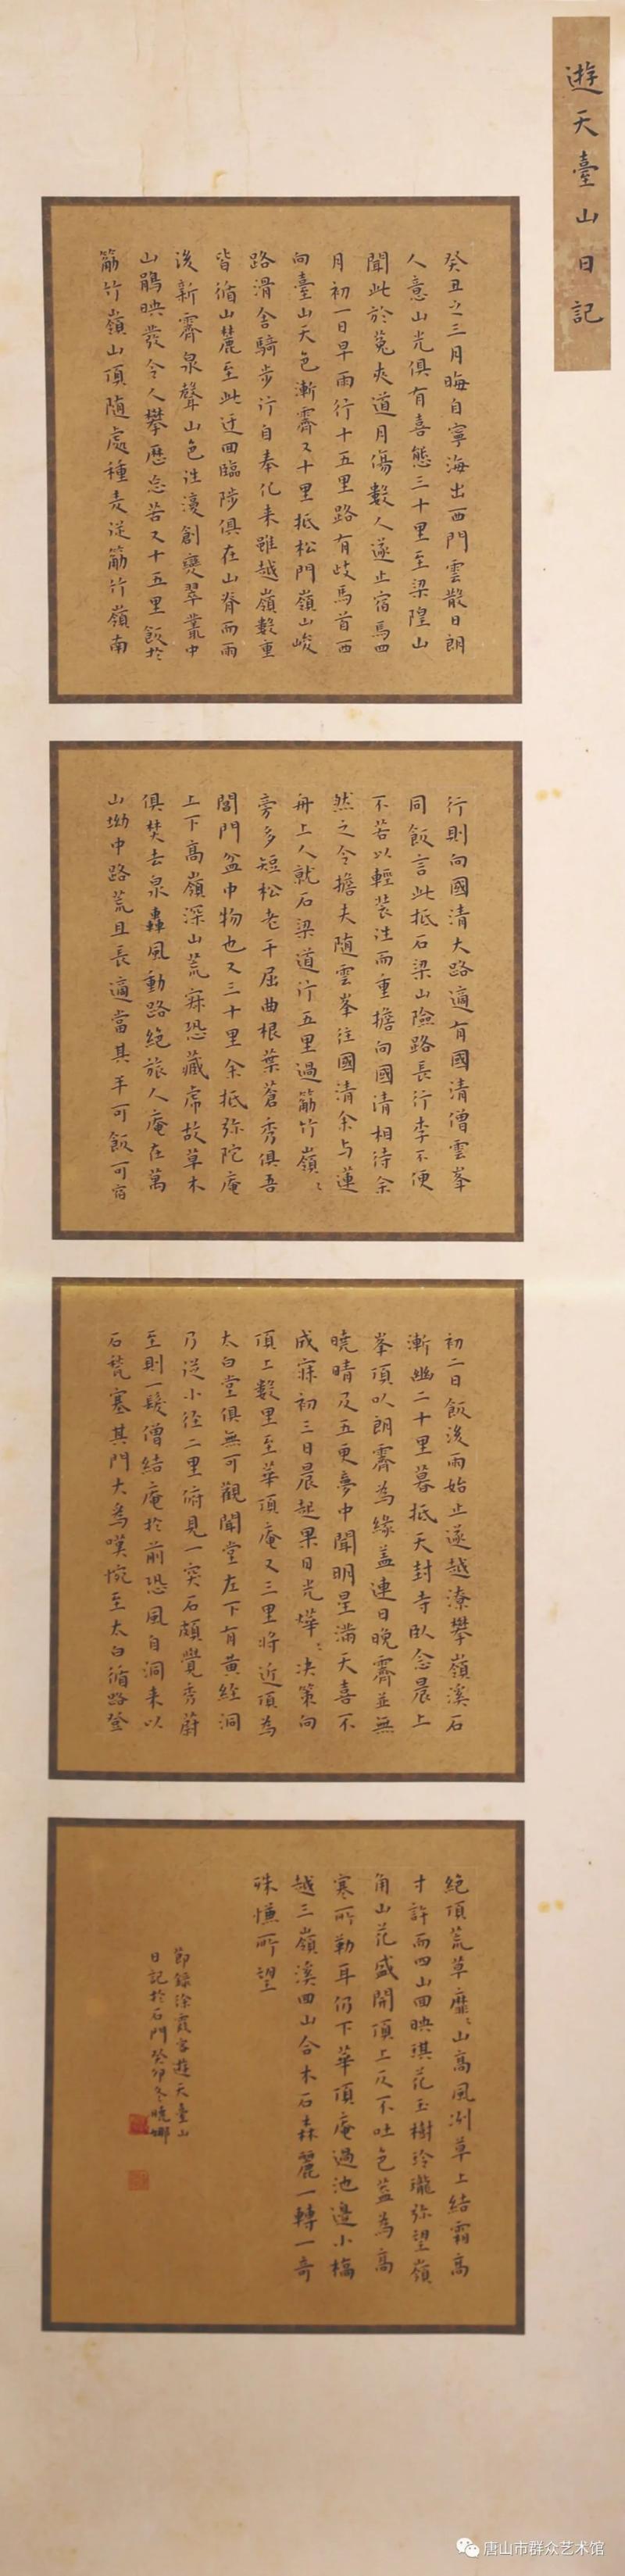 遊天臺山日記
癸丑之三月晦自寧海出西門雲散日朗
人意山光俱有喜態三十里至梁隍山
聞此於菟夾道月傷數人遂止宿焉四
月初一日早雨行十五里路有歧馬首西
向臺山天色漸霽又十里抵松門嶺山峻
路滑舍騎步行自奉化來雖越嶺數重
皆循山麓至此迂回臨陟俱在山脊而雨
後新霽泉聲山色往復創變翠叢中
山鵑映發令人攀歷忘苦又十五里飯於
筋竹嶺山頂隨處種麦從筋竹嶺南
行則向國清大路適有國清僧雲峯
同飯言此抵石梁山險路長行李不便
不若以輕裝往而重擔向國清相待余
然之令擔夫隨雲峯往國清余与蓮
舟上人就石梁道行五里過筋竹嶺々
旁多短松老干屈曲根葉蒼秀俱吾
閶門盆中物也又三十里余抵弥陀庵
上下高嶺深山荒寂恐藏虎故草木
俱焚去泉轟風動路絕旅人庵在萬
山坳中路荒且長適當其半可飯可宿
初二日飯後雨始止遂越潦攀嶺溪石
漸幽二十里暮抵天封寺臥念晨上
峯頂以朗霽為緣蓋連日晚霽並無
曉晴及五更夢中聞明星滿天喜不
成寐初三日晨起果日光燁々决策向
頂上數里至華頂庵又三里将近頂為
太白堂俱無可觀聞堂左下有黄經洞
乃從小徑二里俯見一突石頗覺秀蔚
至則一髮僧結庵於前恐風自洞来以
石甃塞其門大為嘆惋至太白循路登
絕頂荒草靡々山高風冽草上結霜高
寸許而四山回映琪花玉樹玲瓏弥望嶺
角山花盛開頂上反不吐色蓋為高
寒所勒耳仍下華頂庵過池邊小橋
越三嶺溪回山合木石森麗一轉一奇
殊慊所望
節錄徐霞客遊天臺山
日記於石門癸卯冬曉娜
唐山市群众艺术馆